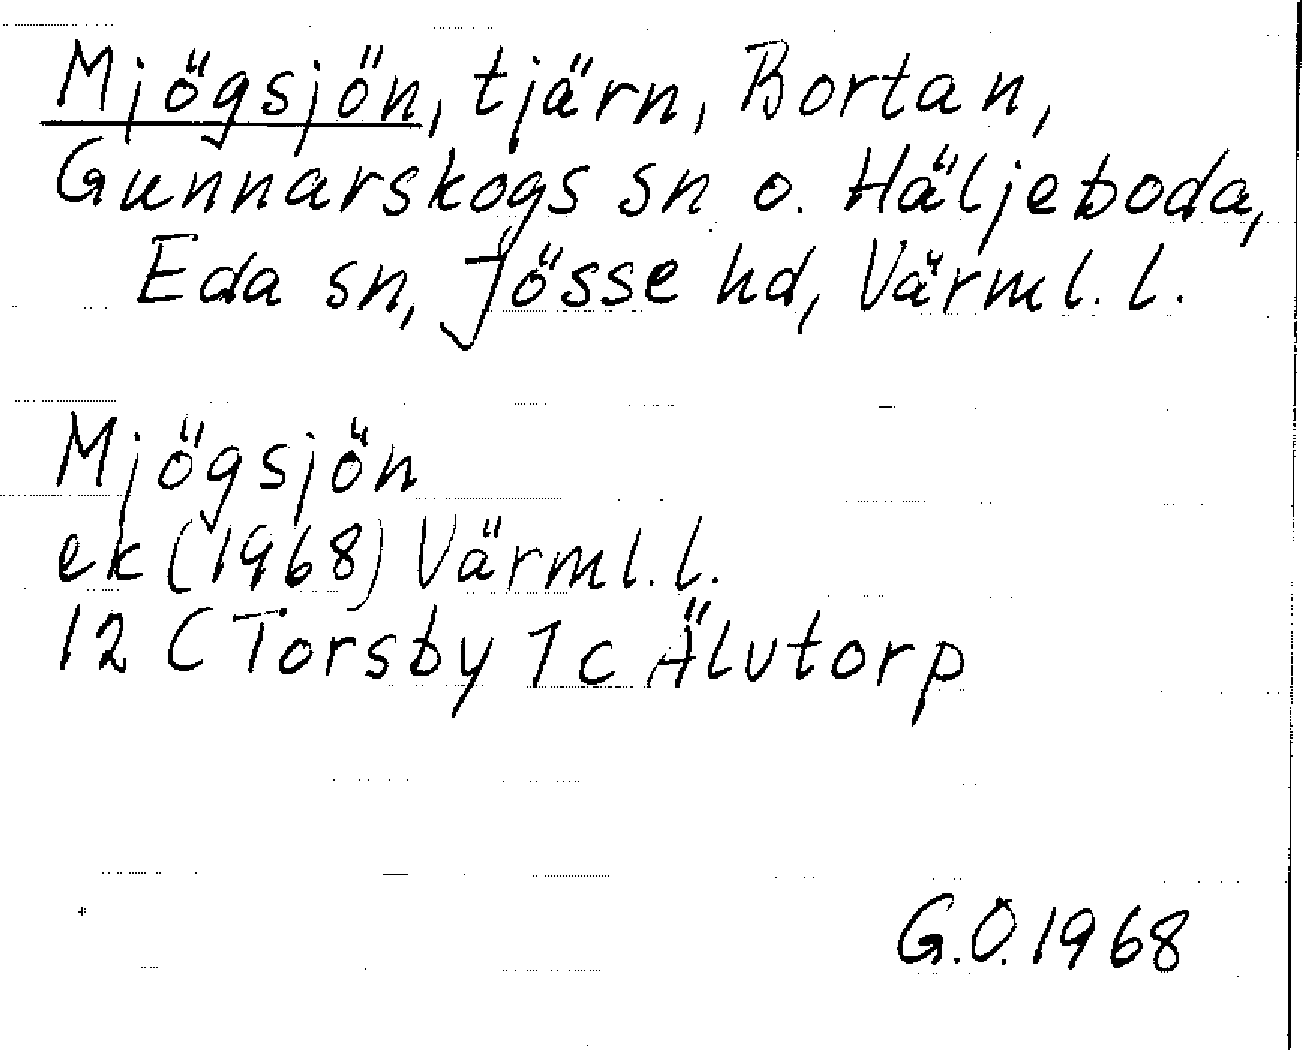 Mjögsjön, tjärn, Bortan,
Gunnarskogs sn o. Häljeboda,
Eda sn, Jösse hd, Värml. l.
Mjögsjön
ek (1968) Värml. l.
12 C Torsby 1 c Älvtorp
G.Ö. 1968